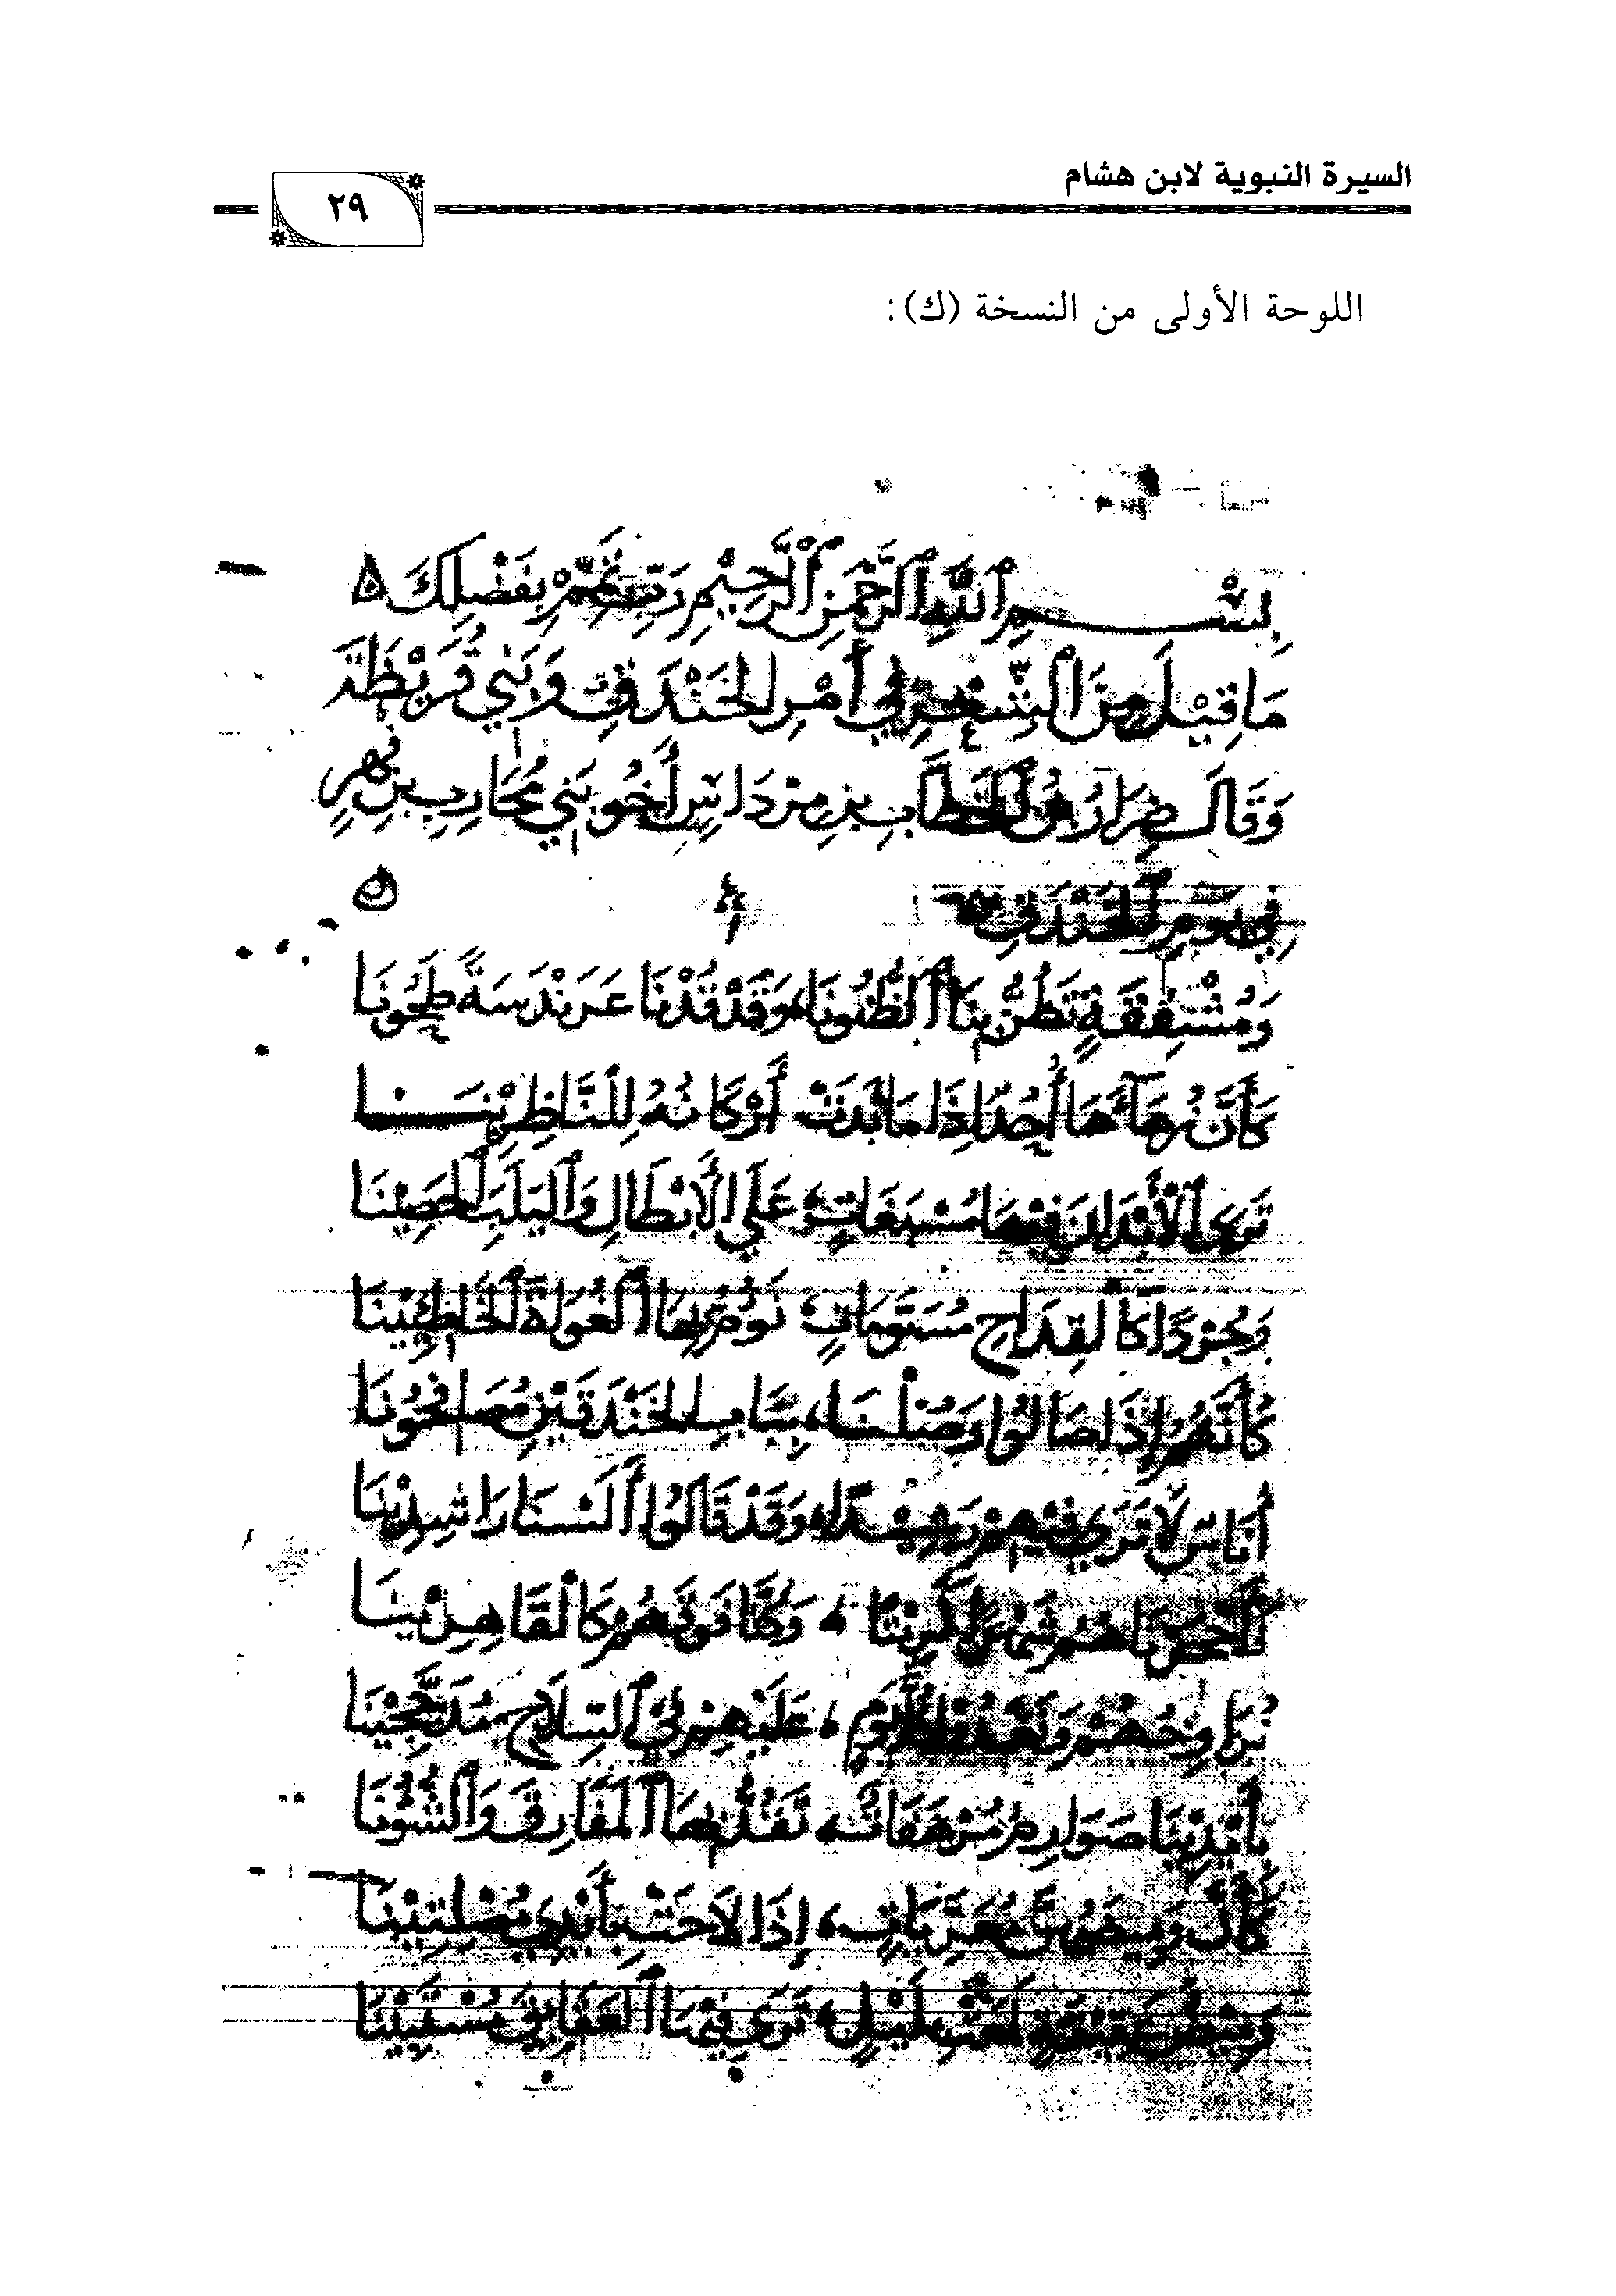 السيرة النبوية لابن هشام
٢٩
اللوحة الأولى من النسخة (ك):
بِسْمِ اللَّهِ الرَّحْمَنِ الرَّحِيْمِ رَبِّ تَمِّمْ بِفَضْلِكَ ه
مَا قِيْلَ مِنَ الشِّعْرِ فِي أَمْرِ الخَنْدَقِ وَبَنِي قُرَيْظَةَ
وَقَالَ ضِرَارُ بْنُ الخَطَّابِ بنِ مِرْدَاسٍ أَخُو بَنِي مُحَارِبِ بنِ فِهْرٍ
فِي يَوْمِ الخَنْدَقِ ه
وَمُشْفِقَةٍ تَظُنُّ بِنَا الظُّنُونَا، وَقَدْ قُدْنَا عَرَنْدَسَةً طَحُونَا
كَأَنَّ زُهَاءَهَا أُحُدٌ إِذَا مَا بَدَتْ أَرْكَانُهُ لِلنَّاظِرِيْنَا
تَرَى الأَبْدَانَ فِيْهَا مُسْبَغَاتٍ، عَلَى الأَبْطَالِ وَاليَلَبَ الحَصِيْنَا
وَجُرْدًا كَالقِدَاحِ مُسَوَّمَاتٍ، نَؤُمُّ بِهَا الغُوَاةَ الخَاطِئِيْنَا
كَأَنَّهُمُ إِذَا صَالُوا وَصُلْنَا، بِبَابِ الخَنْدَقَيْنِ مُصَافِحُونَا
أُنَاسٌ لَا تَرَى فِيْهِمْ رَشِيْدًا، وَقَدْ قَالُوا أَلَسْنَا رَاشِدِيْنَا
فَأَحْجَرْنَاهُمُ شَهْرًا كَرِيْتًا، وَكُنَّا فَوْقَهُمْ كَالقَاهِرِيْنَا
نُرَاوِحُهُمْ وَنَغْدُو كُلَّ يَوْمٍ، عَلَيْهِمْ فِي السِّلَاحِ مُدَجَّجِيْنَا
بِأَيْدِيْنَا صَوَارِمُ مُرْهَفَاتٌ، تَقُدُّ بِهَا المَفَارِقَ وَالشُّؤُونَا
كَأَنَّ وَمِيْضَهُنَّ مُعَرَّيَاتٍ، إِذَا لَاحَتْ بِأَيْدِي مُصْلِتِيْنَا
وَمِيْضُ عَقِيْقَةٍ لَمَعَتْ بِلَيْلٍ، تَرَى فِيْهَا العَقَايِقَ مُسْتَبِيْنَا